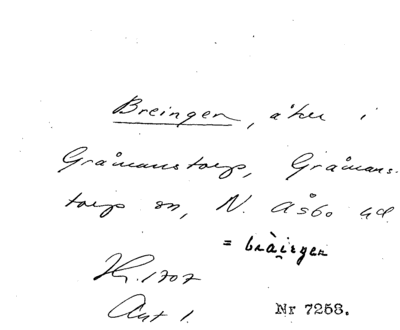 Breingen, åker i
Gråmanstorp, Gråmans-
torps sn, N. Åsbo hd
= bràiṇgen
Hr. 1707
Akt 1.
Nr 7258.